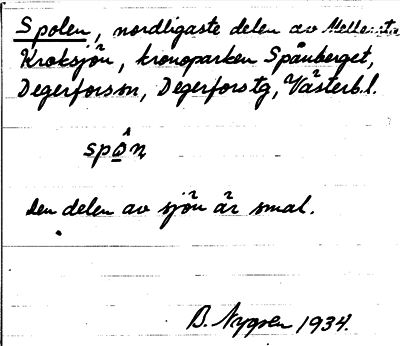 Spolen, nordligaste delen av Mellersta
Kroksjön, kronoparken Spånberget,
Degerfors sn, Degerfors tg, Västerb. l.
spô̲n
Den delen av sjön är smal.
B. Nygren 1934.